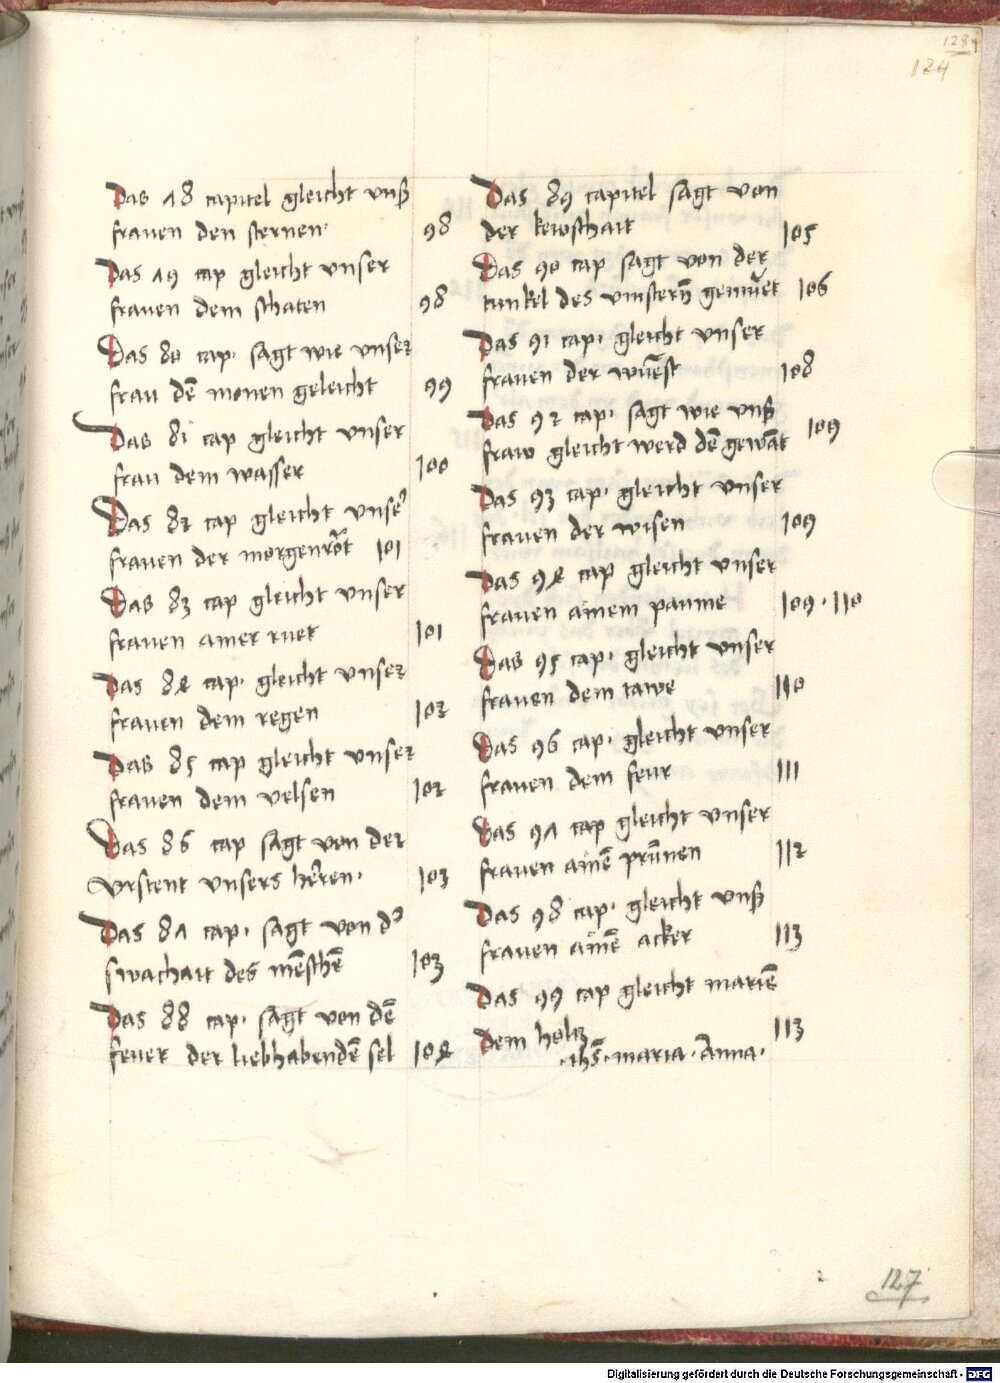 128
124
Das 78 capitel gleicht vnß
frauen den sternen 98
Das 79 cap gleicht vnser
frauen dem schaten 98
Das 80 cap· sagt wie vnser
frau dē monen geleicht 99
Das 81 cap gleicht vnser
frau dem wasser 100
Das 82 cap gleicht vnser
frauen der morgenröt 101
Das 83 cap gleicht vnser
frauen ainer ruet 101
Das 84 cap· gleicht vnser
frauen dem regen 102
Das 85 cap gleicht vnser
frauen dem velsen 102
Das 86 cap sagt von der
vrstent vnsers herren· 103
Das 87 cap· sagt von d'
swachait des mēschē 103
Das 88 cap· sagt von dē
feuer der liebhabendē sel 104
Das 89 capitel sagt von
der kewschait 105
Das 90 cap sagt von der
tunkel des vinsterñ gemüet 106
Das 91 cap· gleicht vnser
frauen der wüest 108
Das 92 cap· sagt wie vnß
fraw gleicht werd dē gewāt 109
Das 93 cap· gleicht vnser
frauen der wisen 109
Das 94 cap gleicht vnser
frauen ainem paume 109·110
Das 95 cap· gleicht vnser
frauen dem tawe 110
Das 96 cap· gleicht vnser
frauen dem feur 111
Das 97 cap gleicht vnser
frauen ainē prūnen 112
Das 98 cap· gleicht vnß
frauen ainē acker 113
Das 99 cap gleicht mariē
dem holtz 113
·ihs̄·maria·Anna·
127
Digitalisierung gefördert durch die Deutsche Forschungsgemeinschaft - DFG